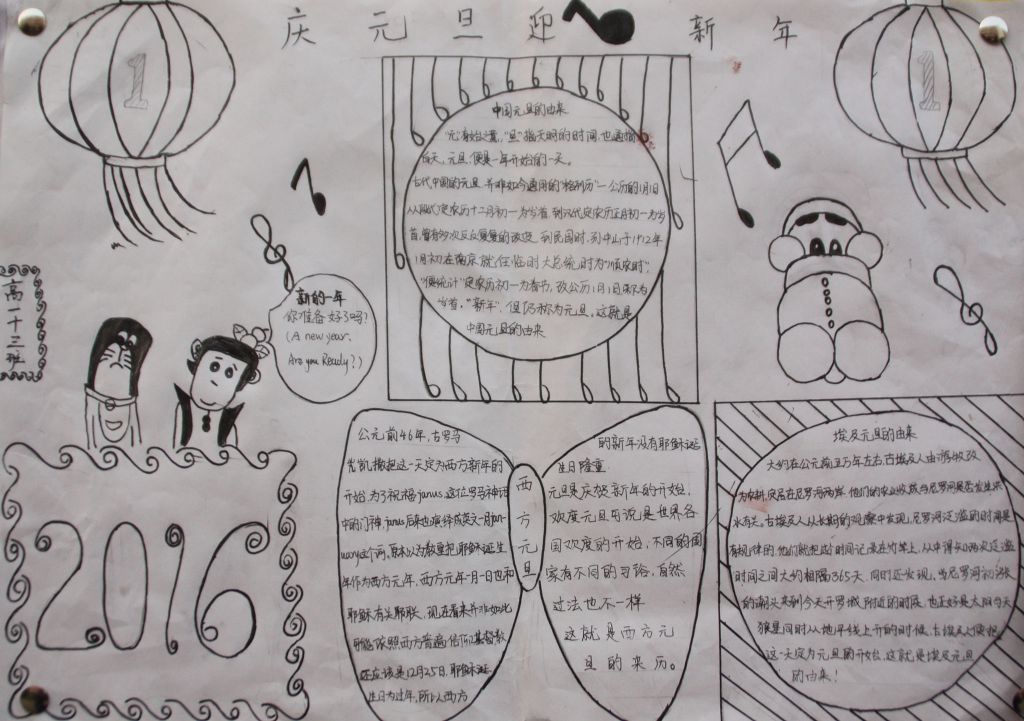 庆元旦迎新年
1
1
高一十三班
新的一年
你准备好了吗?
(A new year,
Are you Ready?)
2016
中国元旦的由来
"元"有始之意,"旦"指天明的时间,也通指
白天,元旦,便是一年开始的一天。
古代中国的元旦,并非如今通用的"格列历"—公历的1月1日
定农历十二月初一为岁首,到汉代定农历正月初一为岁
首,曾有多次反反复复的改变,到民国时,孙中山于1912年
1月初在南京就任临时大总统时为"顺农时",
"便统计"定农历初一为春节,改公历1月1日称为
岁首,"新年",但仍称为元旦。这就是
中国元旦的由来
公元前46年,古罗马
凯撒把这一天定为西方新年的
开始,为了祝福janus,这位罗马神话
中的门神,janus后来也演绎成英文一月jan-
uary这个词,原本以为教皇把耶稣诞生
年作为西方元年,西方元年一月一日也和
耶稣有关联,现在看来并非如此
可能依照西方普遍信仰基督教
还应该是12月25日,耶稣诞
生日为过年,所以西方
西方元旦
的新年没有耶稣诞
生日隆重
元旦是庆贺新年的开始,
欢度元旦可说是世界各
国欢度的开始,不同的国
家有不同的习俗,自然
过法也不一样
这就是西方元
旦的来历。
埃及元旦的由来
大约在公元前五万年左右,古埃及人由游牧改
为农耕,定居在尼罗河两岸,他们的农业收成与尼罗河是否发生洪
水有关。古埃及人从长期的观察中发现,尼罗河泛滥的时间是
有规律的,他们就把这个时间记录在竹竿上,从中得知两次泛滥
时间之间大约相隔365天。同时还发现,当尼罗河初涨
的潮头来到今天开罗城附近的时候,也正好是太阳与天
狼星同时从地平线上升的时候,古埃及人便把
这一天定为元旦的开始,这就是埃及元旦
的由来!